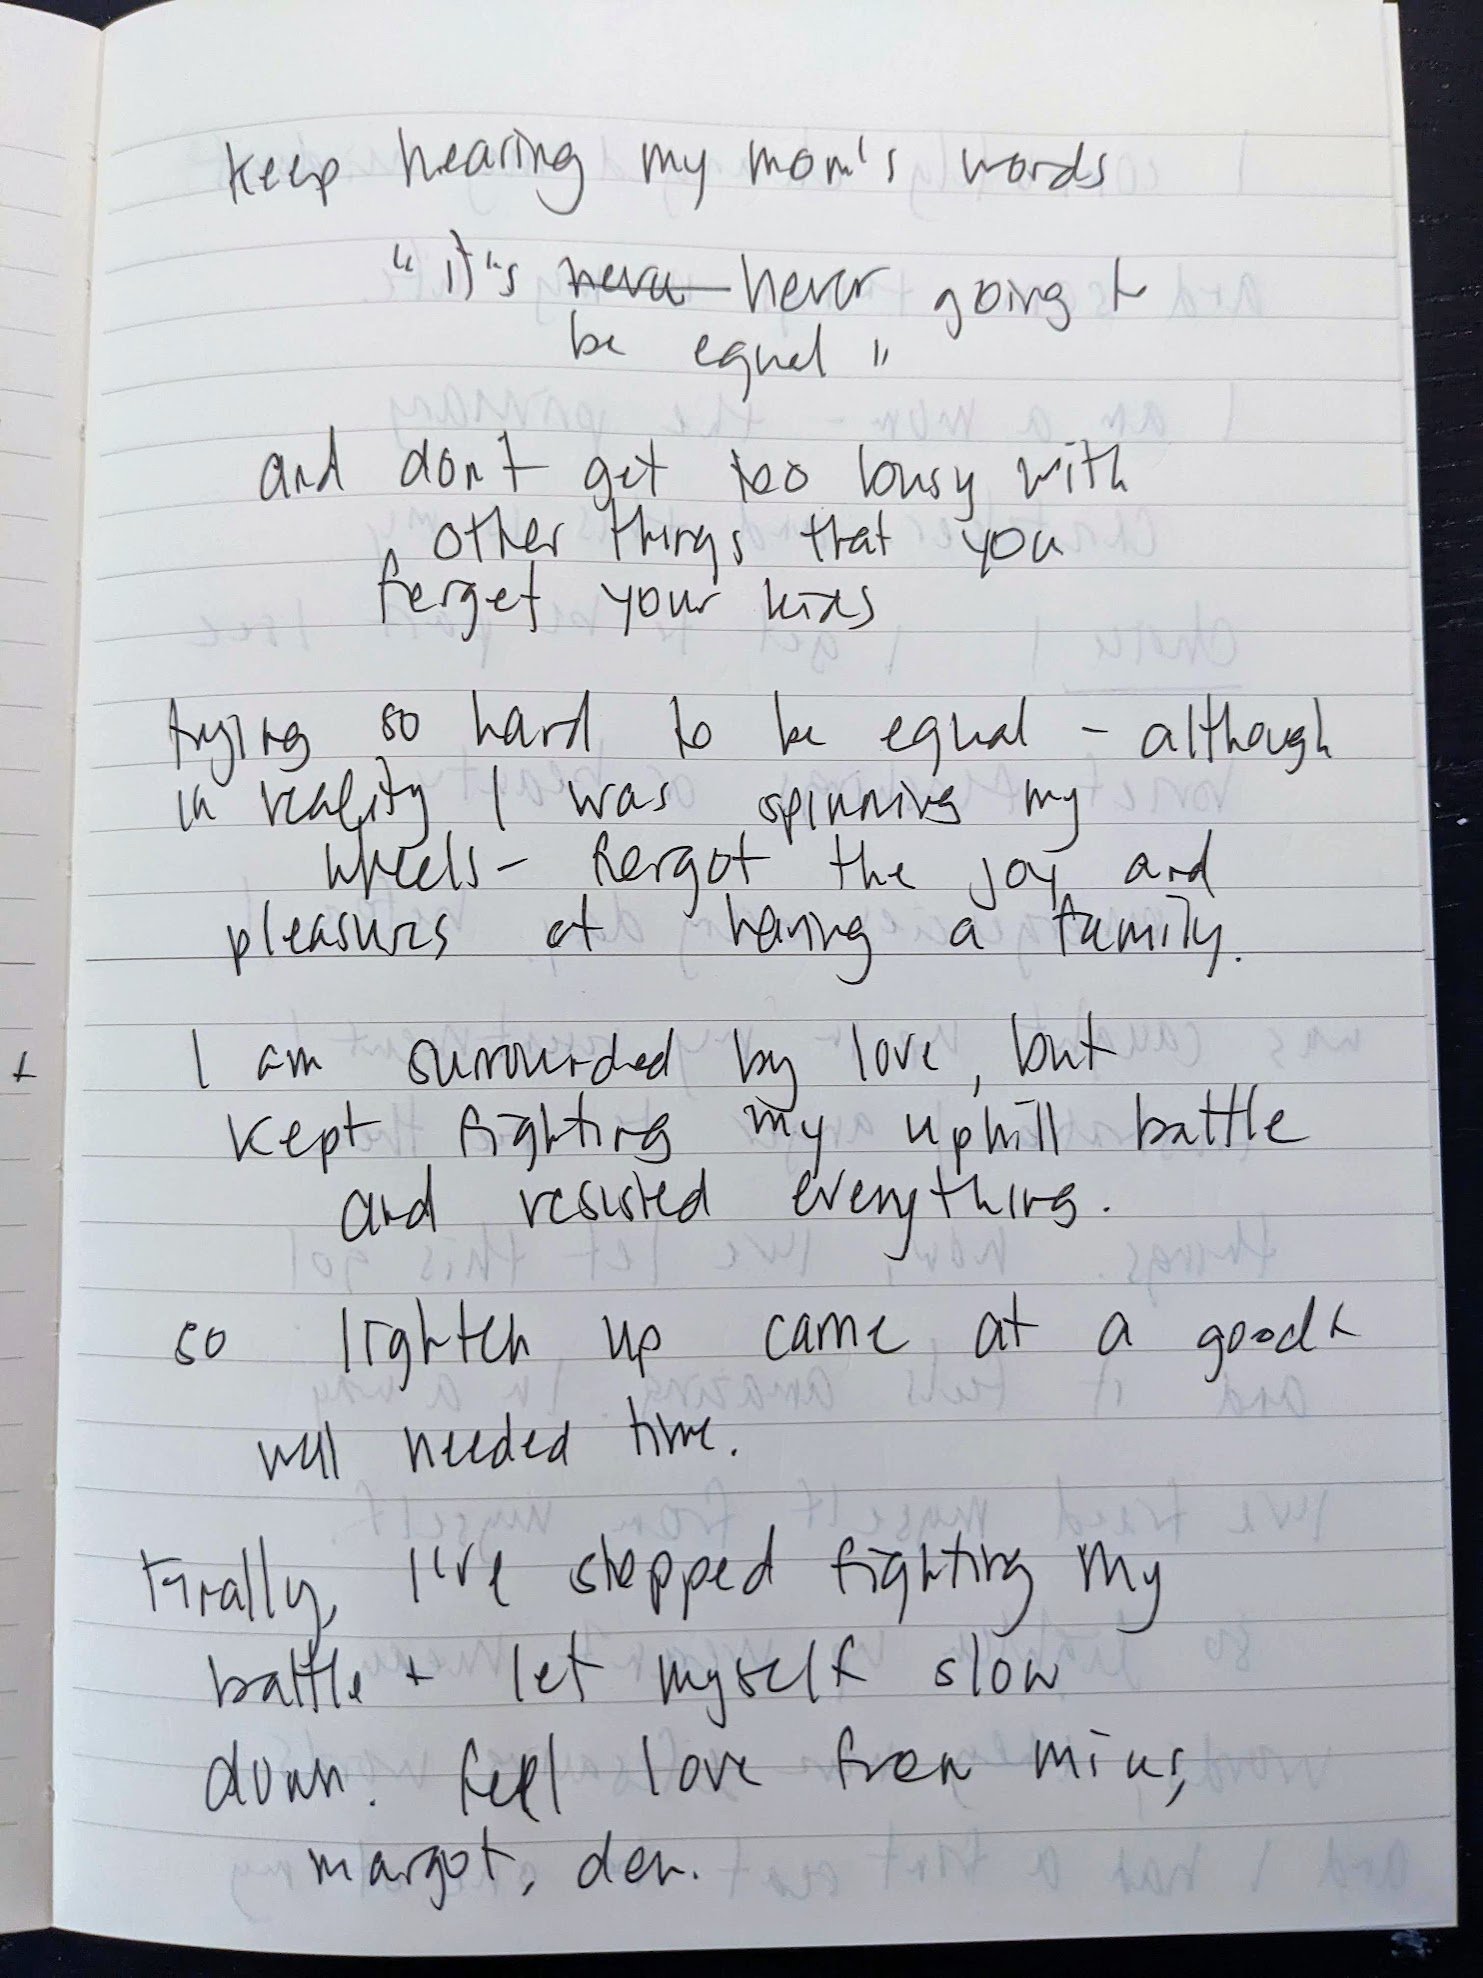 keep hearing my mom's words
"it"s neve never going to
be equal"
and don't get too busy with
other things that you
forget your kids
trying so hard to be equal - although
in reality I was spinning my
wheels - forgot the joy and
pleasures of having a family.
I am surrounded by love, but
kept fighting my uphill battle
and resisted everything.
so lighten up came at a good &
well needed time.
Finally, I've stopped fighting my
battle + let myself slow
down. feel love from
margot, den.